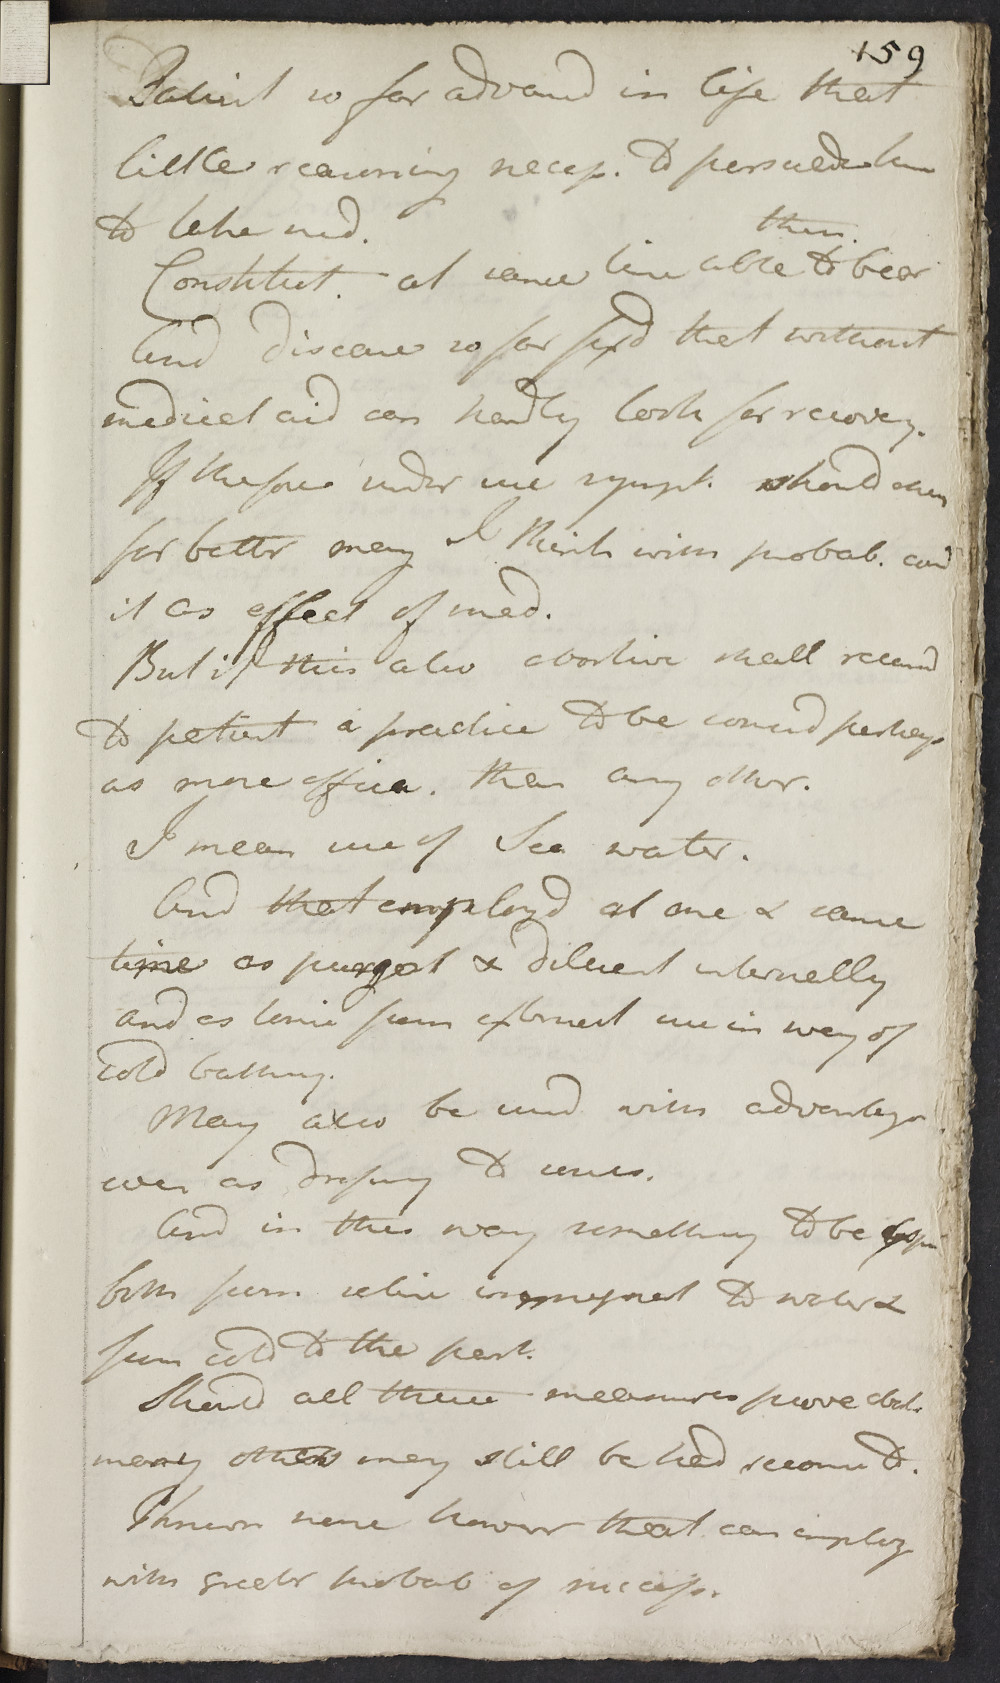 159
Patient so far advancd in life that
little reasoning necess. to persuade him
to take med.
them.
Constitut. at same time able to bear
And disease so far fixd that without
medical aid can hardly look for recovery.
If therefore under use sympt. should change
for better may I think with probab. consd
it as effect of med.
But if this also abortive shall recomd
to patient a practice to be considd perhaps
as more efficac. than any other.
I mean use of Sea water.
And that employd at one & same
time as purgat & diluent internally
and as tonic from external use in way of
cold bathing.
May also be used with advantage
even as dressing to
And in this way something to be
both from saline impregnat to water &
from cold to the part.
Should all these measures prove abort.
many others may still be had recourse to.
I know none however that can employ
with greater probab of success.